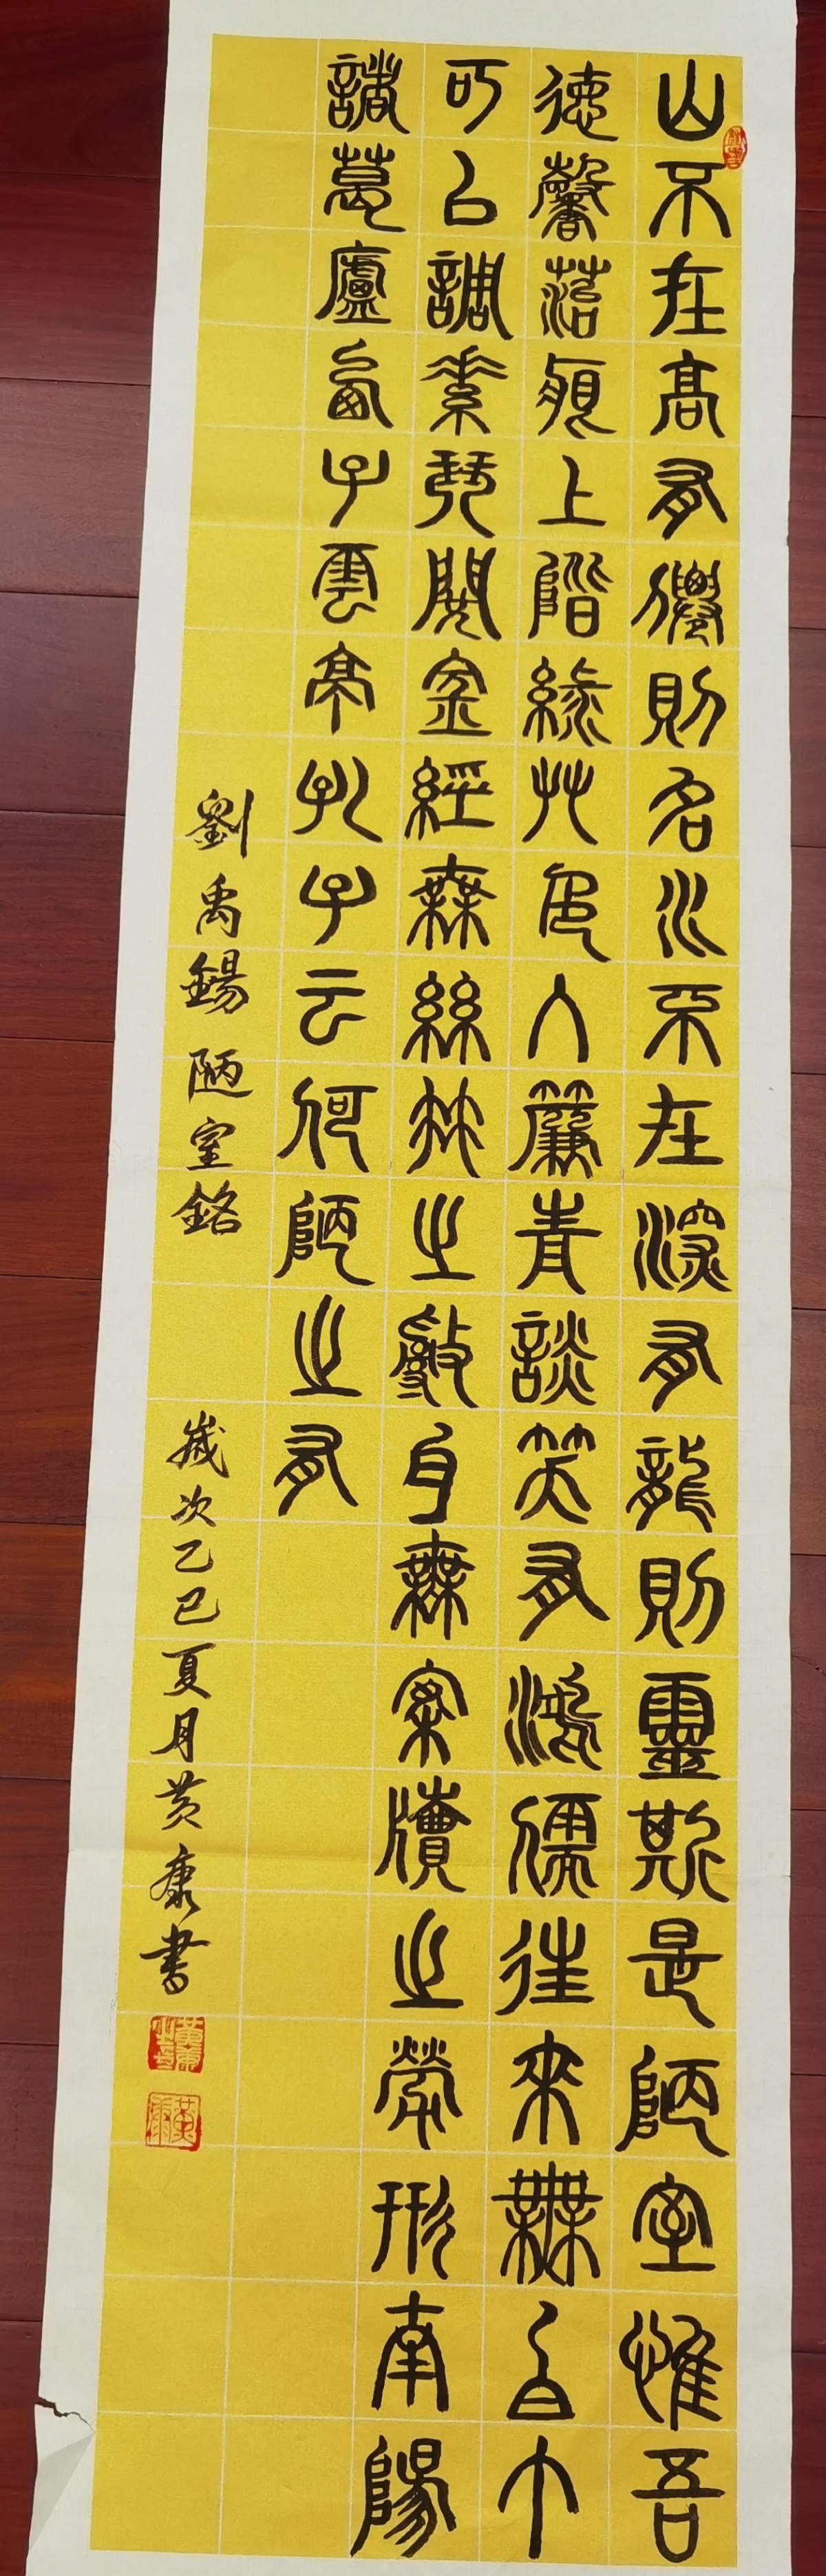 山不在高有僊則名水不在深有龍則靈斯是陋室惟吾
德馨菭痕上階綠艸色入簾青談笑有鴻儒往來無白丁
可以調素琴閱金經無絲竹之亂耳無案牘之勞形南陽
諸葛廬西子雲亭孔子云何陋之有
劉禹錫 陋室銘 歲次乙巳夏月黃康書